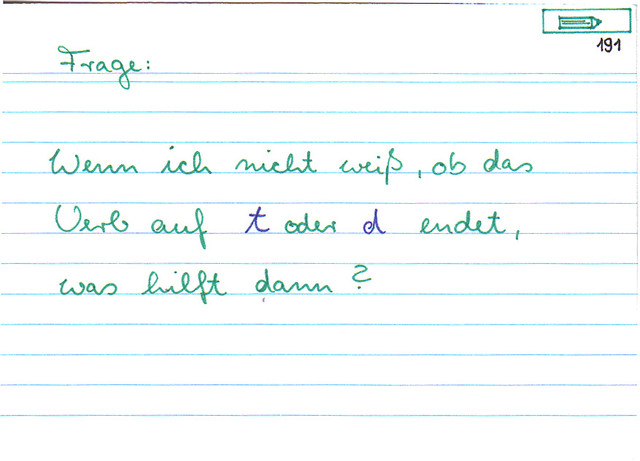 191
Frage:
Wenn ich nicht weiß, ob das
Verb auf t oder d endet,
was hilft dann?